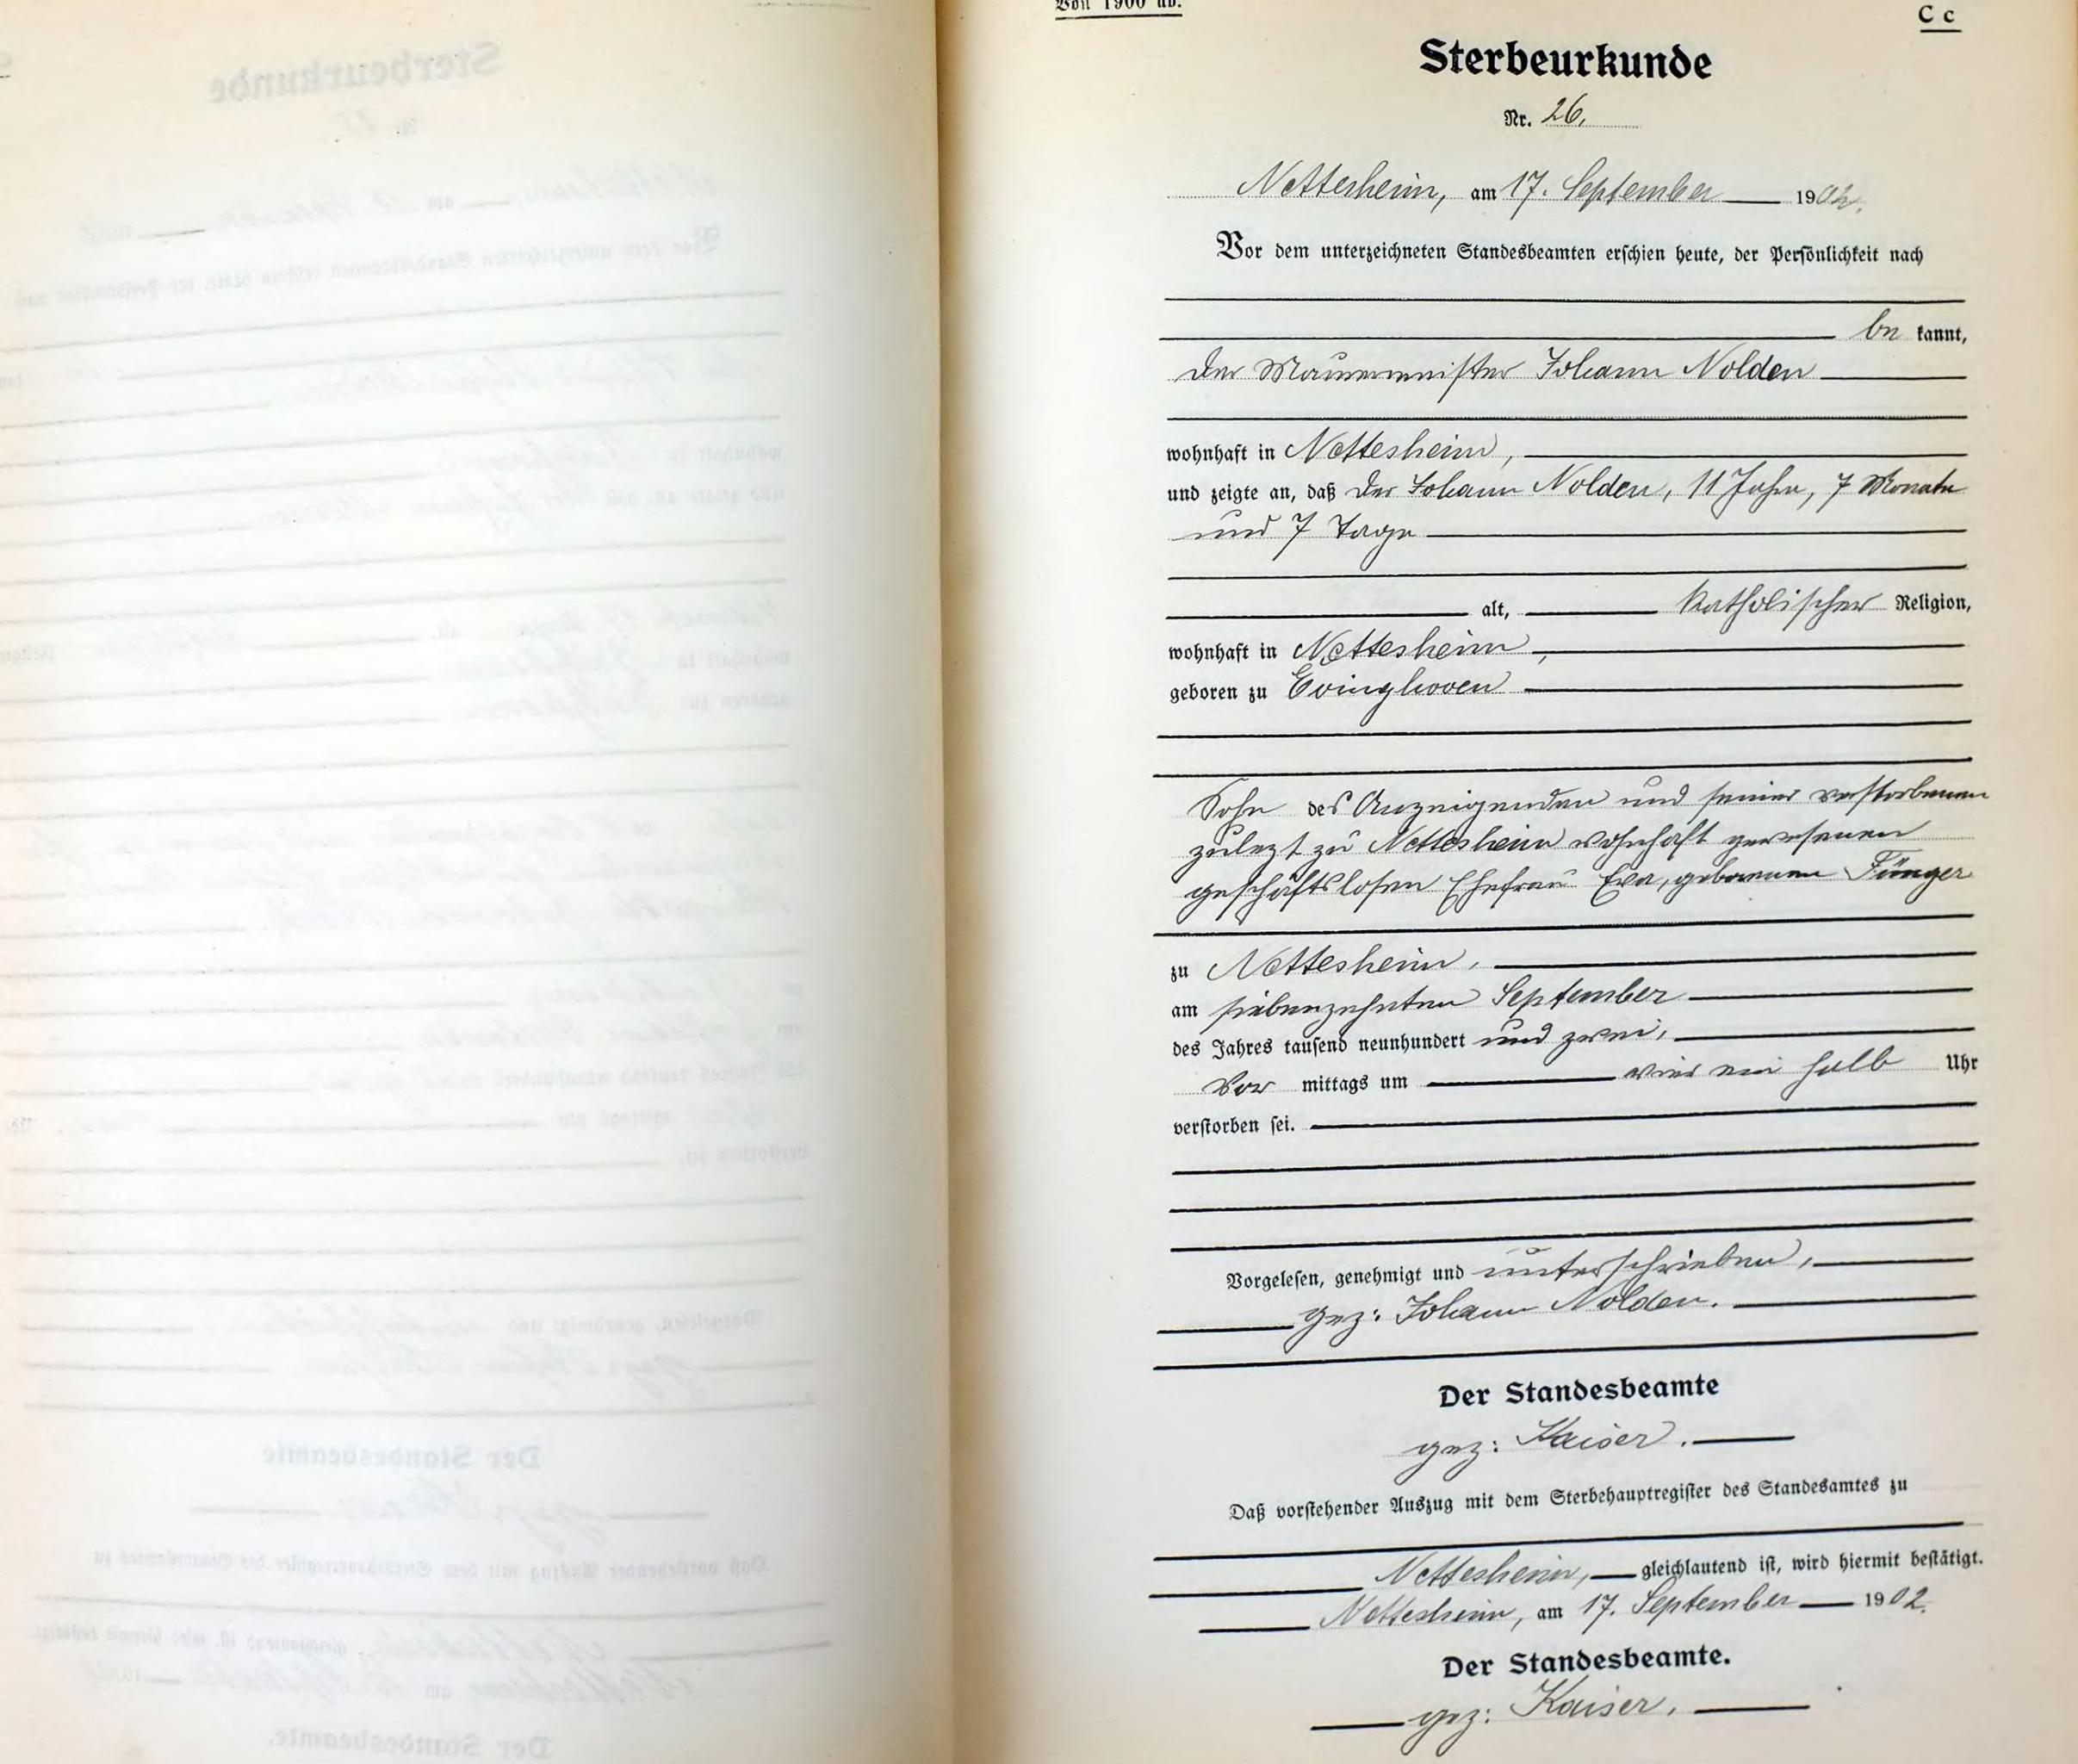 Von 1900 ab.
C c
Sterbeurkunde
Nr. 26.
Nettesheim, am 17. September 1902.
Vor dem unterzeichneten Standesbeamten erschien heute, der Persönlichkeit nach
be kannt,
der Maurermeister Johann Nolden
wohnhaft in Nettesheim,
und zeigte an, daß der Johann Nolden, 11 Jahre, 7 Monate
und 7 Tage
alt, katholischer Religion,
wohnhaft in Nettesheim,
geboren zu Evinghoven
Sohn des Anzeigenden und seiner verstorbenen
zuletzt zu Nettesheim wohnhaft gewesenen
geschäftslosen Ehefrau Eva, geborenen Fünger
zu Nettesheim,
am siebenzehnten September
des Jahres tausend neunhundert und zwei,
Vor mittags um vier ein halb Uhr
verstorben sei.
Vorgelesen, genehmigt und unterschrieben,
gez: Johann Nolden.
Der Standesbeamte
gez: Kaiser.
Daß vorstehender Auszug mit dem Sterbehauptregister des Standesamtes zu
Nettesheim, gleichlautend ist, wird hiermit bestätigt.
Nettesheim, am 17. September 1902.
Der Standesbeamte.
gez: Kaiser.